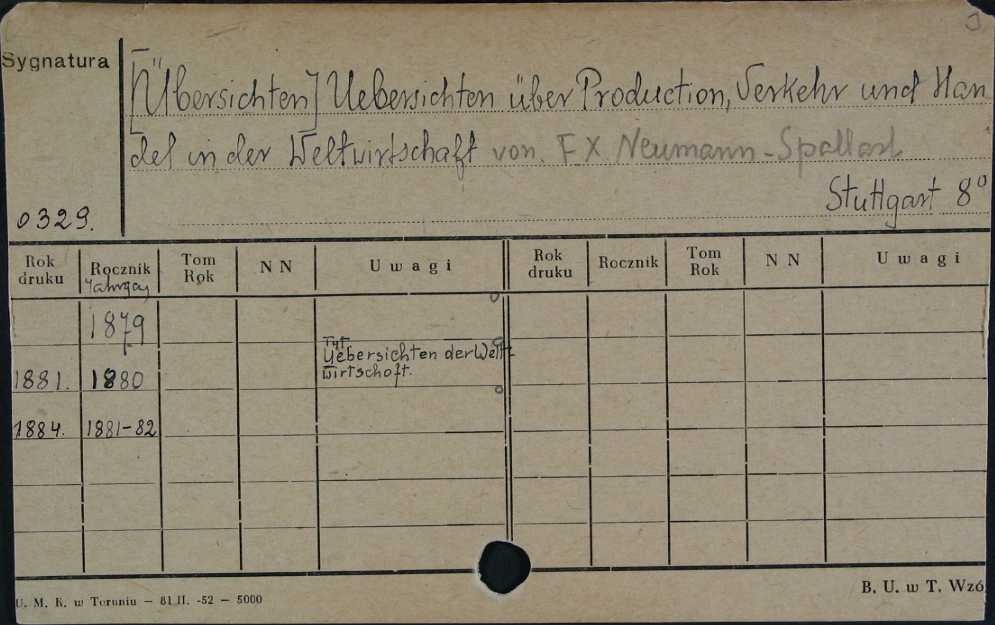 Sygnatura
[Übersichten] Uebersichten über Production, Verkehr und Han
del in der Weltwirtschaft von. F X Neumann-Spallart
Stuttgart 8°
0329.
Rok druku Rocznik Tom Rok N N Uwagi Rok druku Rocznik Tom Rok N N Uwagi
Jahrgang
1879
Tyt.
Uebersichten der Welt-
1881. 1880 wirtschaft.
1884. 1881-82
U. M. K. w Toruniu — 81 II. -52 — 5000
B. U. w T. Wzó